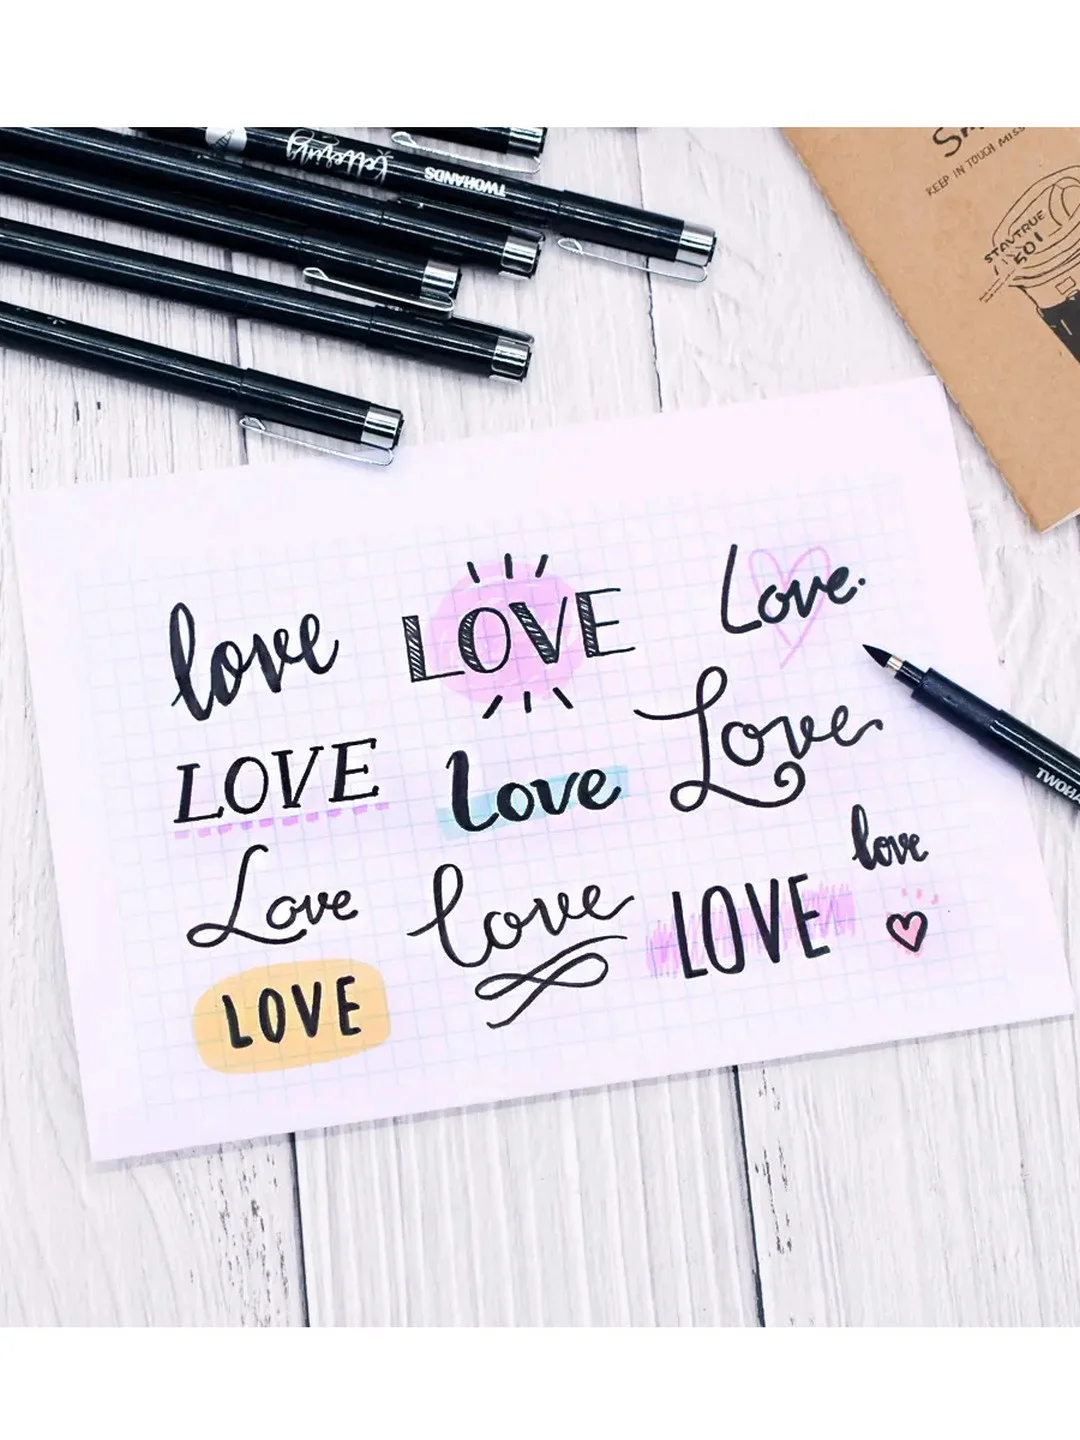 Lettering TWOHANDS
KEEP IN TOUCH
STAYTRUE
501
love LOVE Love.
LOVE Love Love
love
Love love LOVE
LOVE
TWOHA